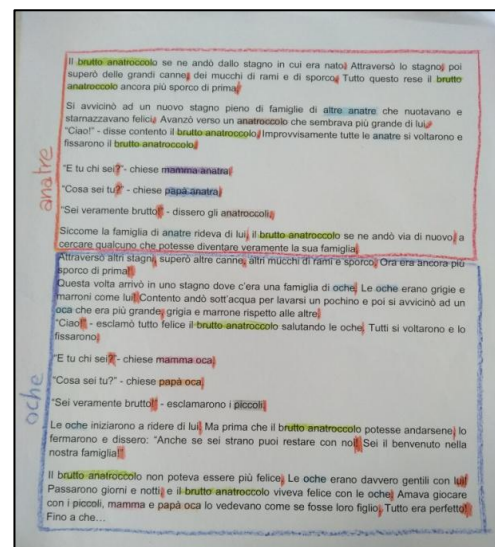 Il brutto anatroccolo se ne andò dallo stagno in cui era nato. Attraversò lo stagno, poi
superò delle grandi canne, dei mucchi di rami e di sporco. Tutto questo rese il brutto
anatroccolo ancora più sporco di prima.
Si avvicinò ad un nuovo stagno pieno di famiglie di altre anatre che nuotavano e
starnazzavano felici. Avanzò verso un anatroccolo che sembrava più grande di lui.
“Ciao!” - disse contento il brutto anatroccolo. Improvvisamente tutte le anatre si voltarono e
fissarono il brutto anatroccolo.
“E tu chi sei?” - chiese mamma anatra.
“Cosa sei tu?” - chiese papà anatra.
“Sei veramente brutto!” - dissero gli anatroccoli.
Siccome la famiglia di anatre rideva di lui, il brutto anatroccolo se ne andò via di nuovo, a
cercare qualcuno che potesse diventare veramente la sua famiglia.
anatre
Attraverso altri stagni, superò altre canne, altri mucchi di rami e sporco. Ora era ancora più
sporco di prima!
Questa volta arrivò in uno stagno dove c’era una famiglia di oche. Le oche erano grigie e
marroni come lui! Contento andò sott’acqua per lavarsi un pochino e poi si avvicinò ad un
oca che era più grande, grigia e marrone rispetto alle altre.
“Ciao!” - esclamò tutto felice il brutto anatroccolo salutando le oche. Tutti si voltarono e lo
fissarono.
“E tu chi sei?”- chiese mamma oca.
“Cosa sei tu?” - chiese papà oca.
“Sei veramente brutto!” - esclamarono i piccoli.
Le oche iniziarono a ridere di lui. Ma prima che il brutto anatroccolo potesse andarsene, lo
fermarono e dissero: “Anche se sei strano puoi restare con noi! Sei il benvenuto nella
nostra famiglia!”
Il brutto anatroccolo non poteva essere più felice. Le oche erano davvero gentili con lui!
Passarono giorni e notti, e il brutto anatroccolo viveva felice con le oche. Amava giocare
con i piccoli, mamma e papà oca lo vedevano come se fosse loro figlio. Tutto era perfetto!
Fino a che…
oche